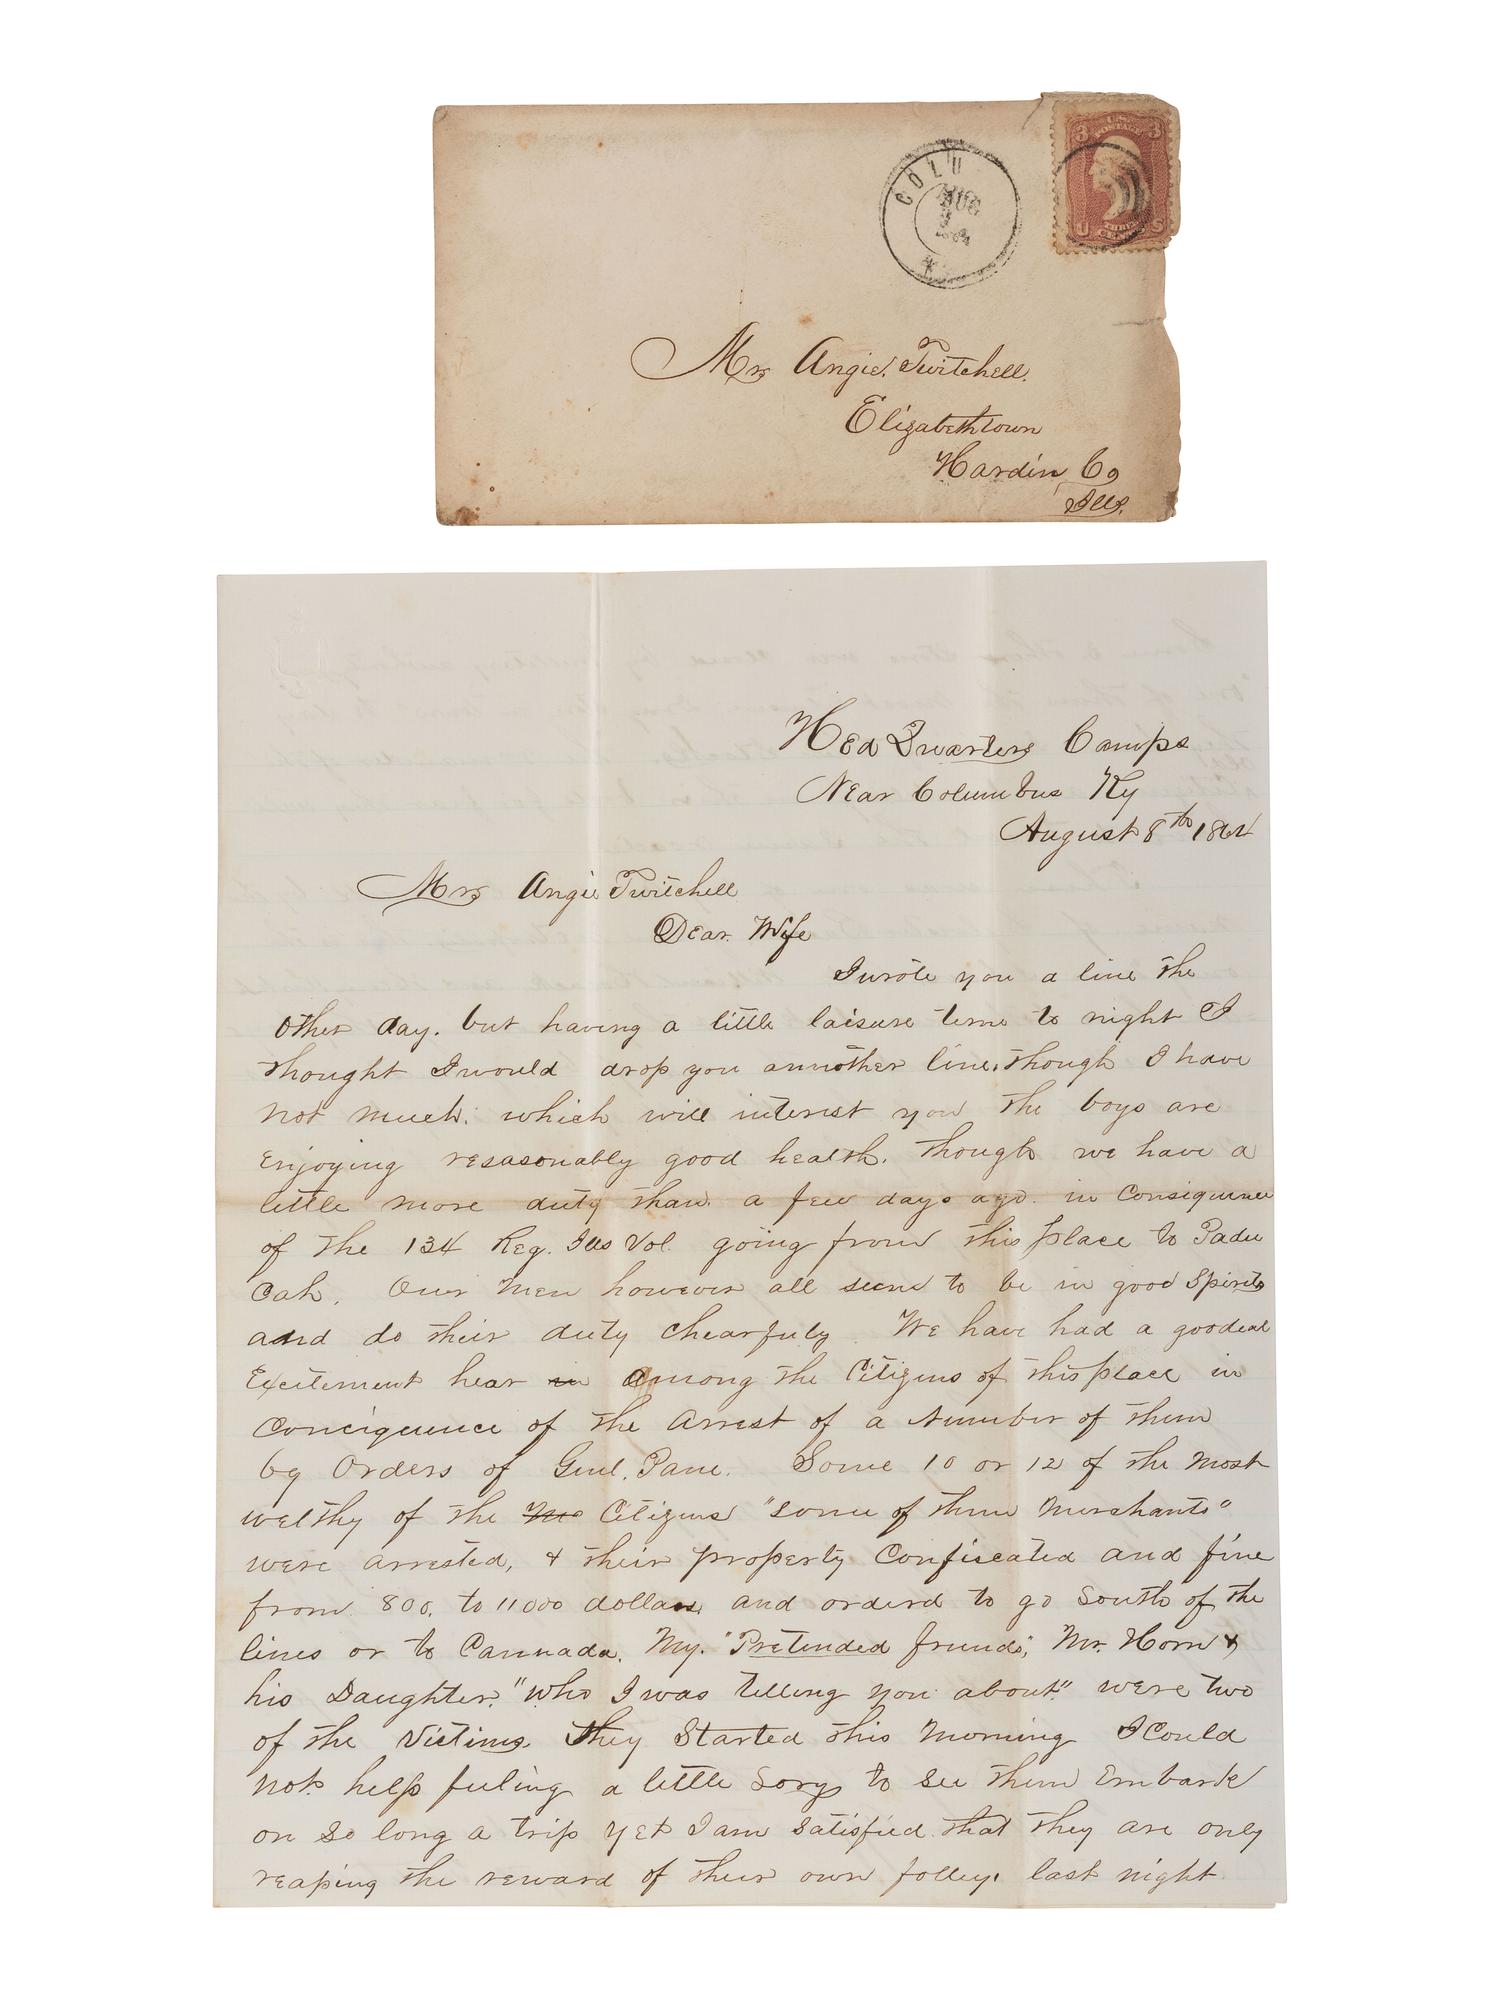 COLU
AUG
3 U.S. 3
POSTAGE
U THREE CENTS S
Mrs Angie. Twitchell.
Elizabethtown
Hardin, Co
Ills.
Hed Quarters Camps
Near Columbus Ky
August 8th 1864
Mrs Angie Twitchell
Dear. Wife
I wrote you a line the
other day. but having a little laisure teme to night I
thought I would drop you annother line, though I have
not much. which will interest you the boys are
Enjoying resasonably good health. though we have a
little more duty than. a few days ago. in Consiquence
of the 134 Reg. Ills Vol. going from this place to Padu
cah. Our men however all seem to be in good Spirits
and do their duty chearfuly. We have had a goodeal
Excitement hear in among the Citizens of this place in
Conciquence of the Arrest of a Number of them
by Orders of Genl. Pane. Some 10 or 12 of the most
welthy of the Citizens "some of them Merchants"
were arrested, & their property Confiscated and fine
from. 800. to 11000 dollars, and orderd to go South of the
lines or to Cannada. My. "Pretended friends", Mr. Horn &
his Daughter. "who I was telling you about" were two
of the Victims. They Started this Morning I Could
not help feeling a little Sory to see them Embark
on so long a trip yet I am satisfied that they are only
reaping the reward of their own folley. last night